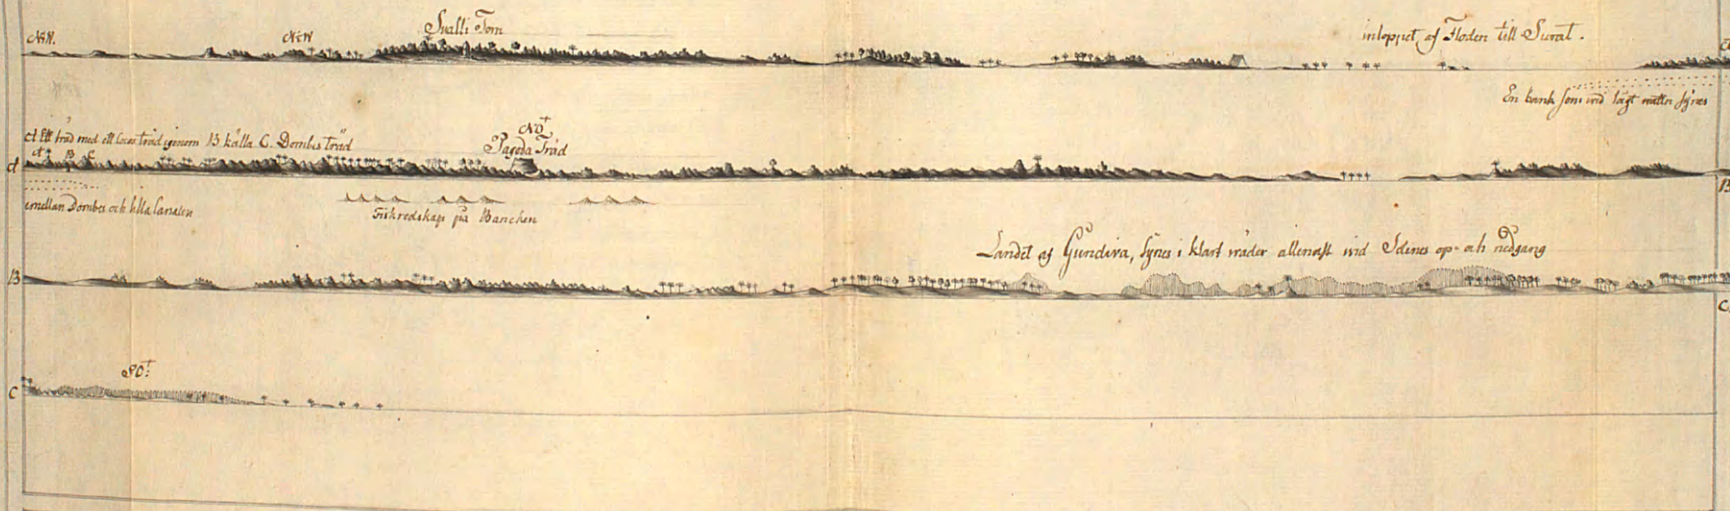 NW.
NtW
Sualli Torn
inloppet af Floden till Surat.
A
En bank som vid lågt watten synes
A Ett träd med ett Cocos träd igenom B källa C. Dombis Träd
NO
Pagoda Träd
A
A B C
B
imellan Dombes och lilla Canalen
Fiskredskap på Bancken
Landet af Gundiva, synes i klart wäder allenast wid Solenes op- och nedgang
B
C
SO
C